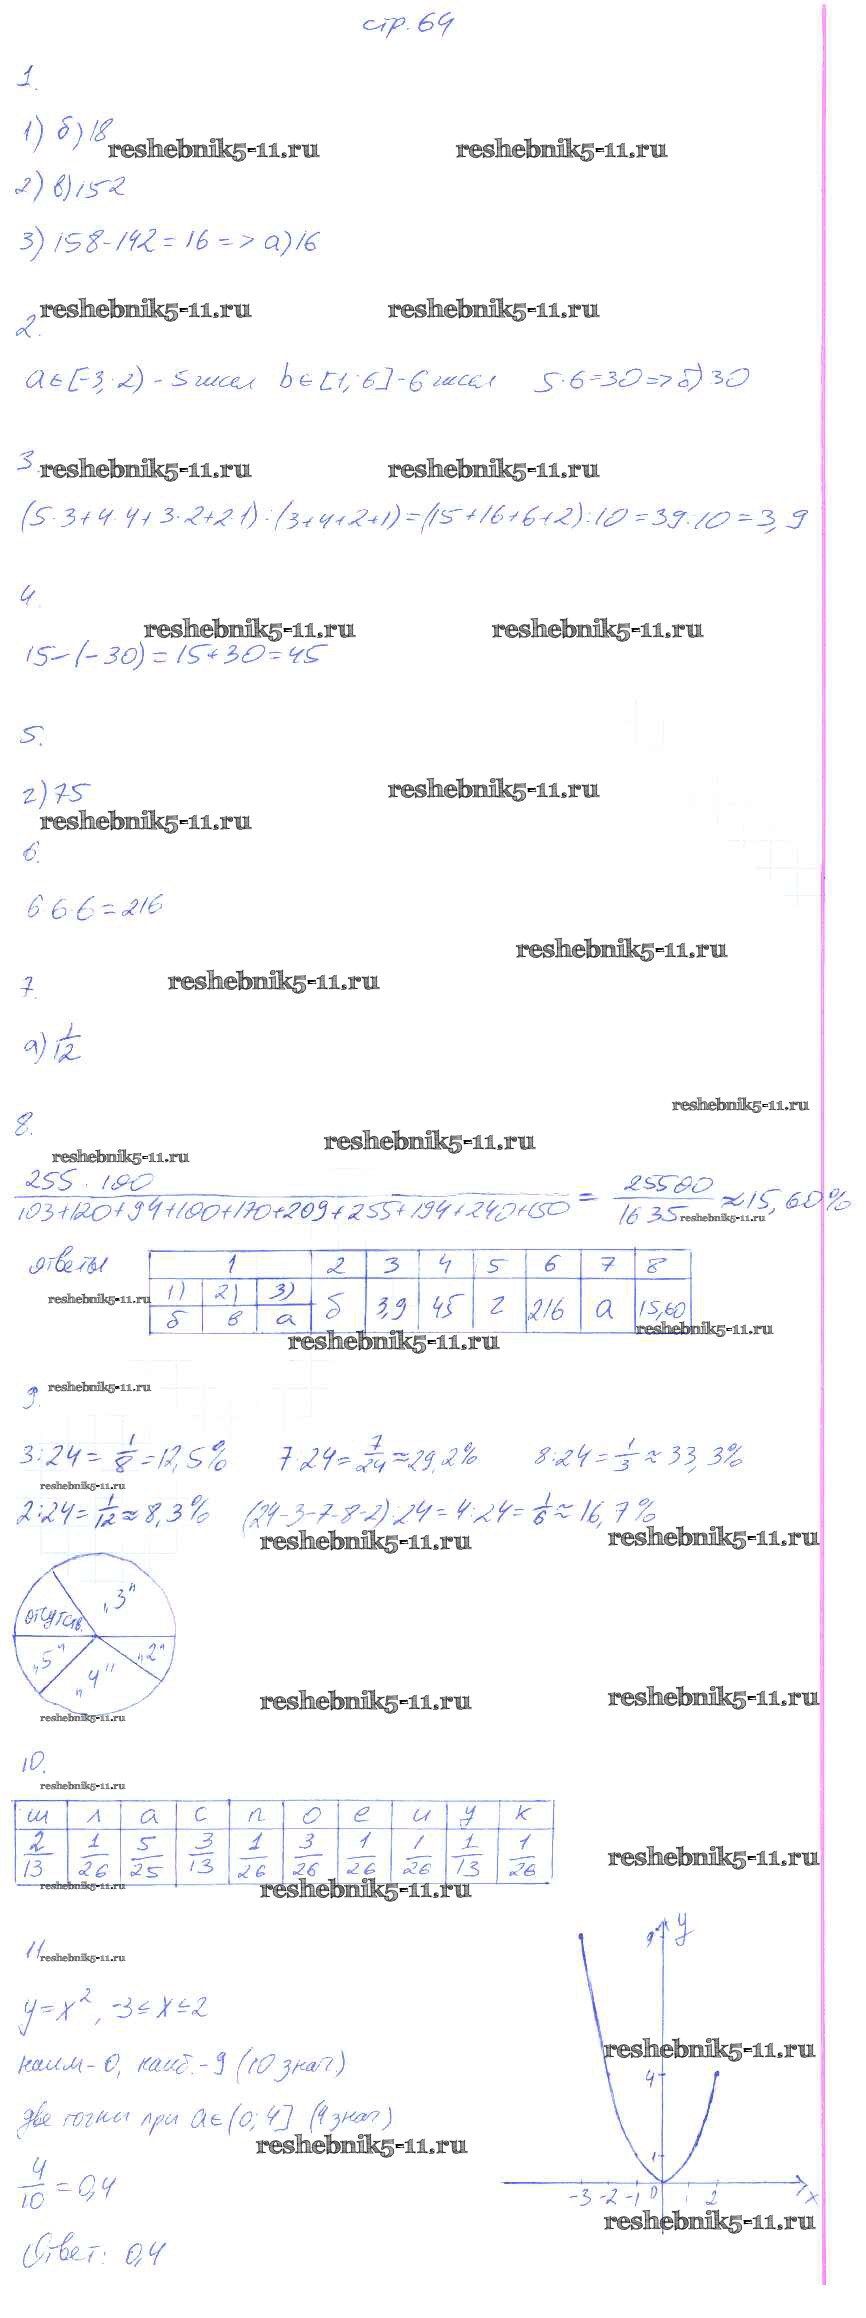 стр. 64
1.
1) б) 18
reshebnik5-11.ru reshebnik5-11.ru
2) в) 152
3) 158-142=16 => а) 16
reshebnik5-11.ru reshebnik5-11.ru
2.
a∈[-3; 2) - 5 чисел b∈[1; 6] - 6 чисел 5·6=30 => б) 30
3. reshebnik5-11.ru reshebnik5-11.ru
(5·3+4·4+3·2+2·1):(3+4+2+1)=(15+16+6+2):10=39:10=3,9
4.
reshebnik5-11.ru reshebnik5-11.ru
15-(-30)=15+30=45
5.
reshebnik5-11.ru
г) 75
reshebnik5-11.ru
6.
6·6·6=216
reshebnik5-11.ru
7. reshebnik5-11.ru
а) 1/12
reshebnik5-11.ru
8. reshebnik5-11.ru
reshebnik5-11.ru
255·100 / 103+120+94+100+170+209+255+194+240+150 = 25500/1635 ≈ 15,60%
reshebnik5-11.ru
ответы 1 2 3 4 5 6 7 8
reshebnik5-11.ru 1) 2) 3)
б в а б 3,9 45 г 216 а 15,60
reshebnik5-11.ru reshebnik5-11.ru
reshebnik5-11.ru
9.
3:24=1/8=12,5% 7:24=7/24≈29,2% 8:24=1/3≈33,3%
reshebnik5-11.ru
2:24=1/12≈8,3% (24-3-7-8-2):24=4:24=1/6≈16,7%
reshebnik5-11.ru reshebnik5-11.ru
„3"
отсутств.
„5" „4" „2"
reshebnik5-11.ru reshebnik5-11.ru
reshebnik5-11.ru
10.
reshebnik5-11.ru
ш л а с п о е и у к
2/13 1/26 5/25 3/13 1/26 3/26 1/26 1/26 1/13 1/26
reshebnik5-11.ru
reshebnik5-11.ru reshebnik5-11.ru
11. reshebnik5-11.ru
y=x², -3≤x≤2
наим-0, наиб.-9 (10 знач)
две точки при a∈(0; 4] (4 знач)
reshebnik5-11.ru
4/10=0,4
Ответ: 0,4
y
9
reshebnik5-11.ru
4
1
-3 -2 -1 0 1 2 x
reshebnik5-11.ru